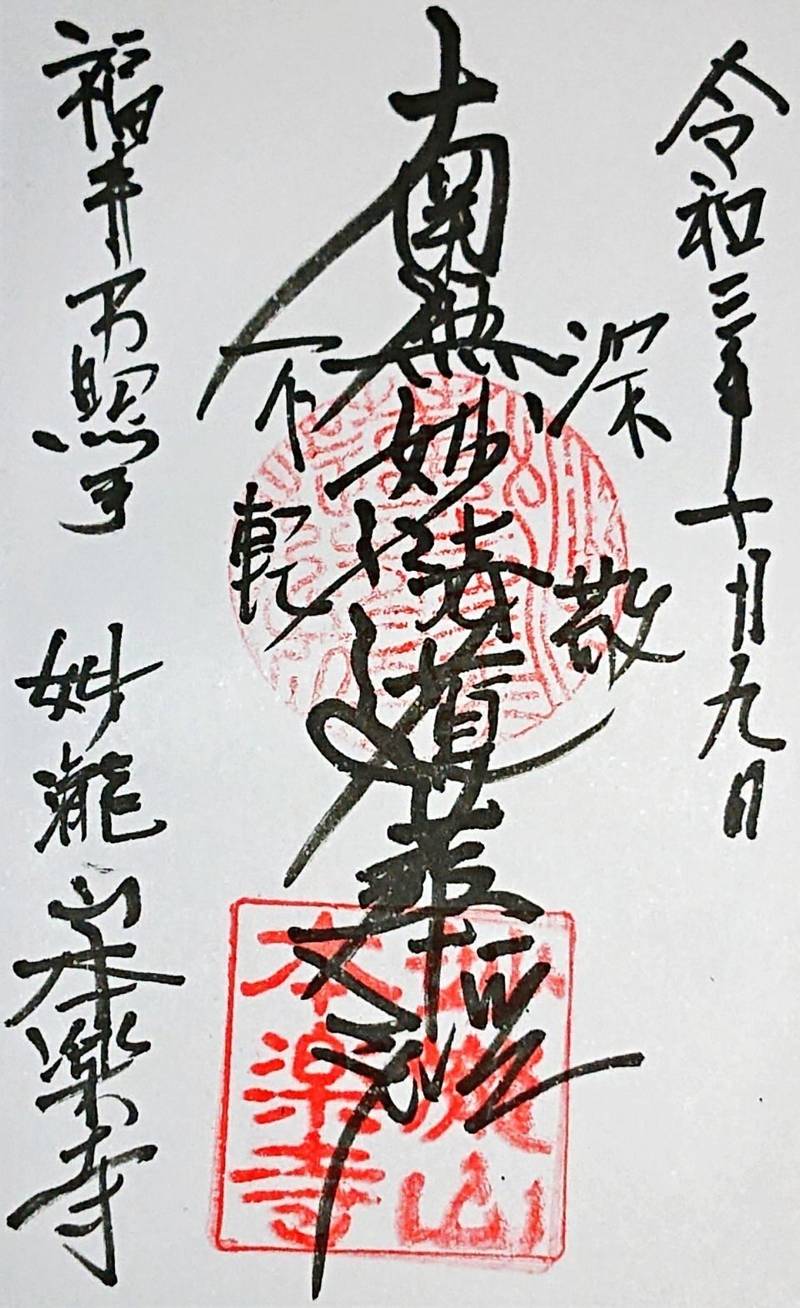 令和三年十月九日
深敬
南無妙法蓮華経
不軽
福井市照手 妙瀧山本楽寺
妙瀧山
本楽寺